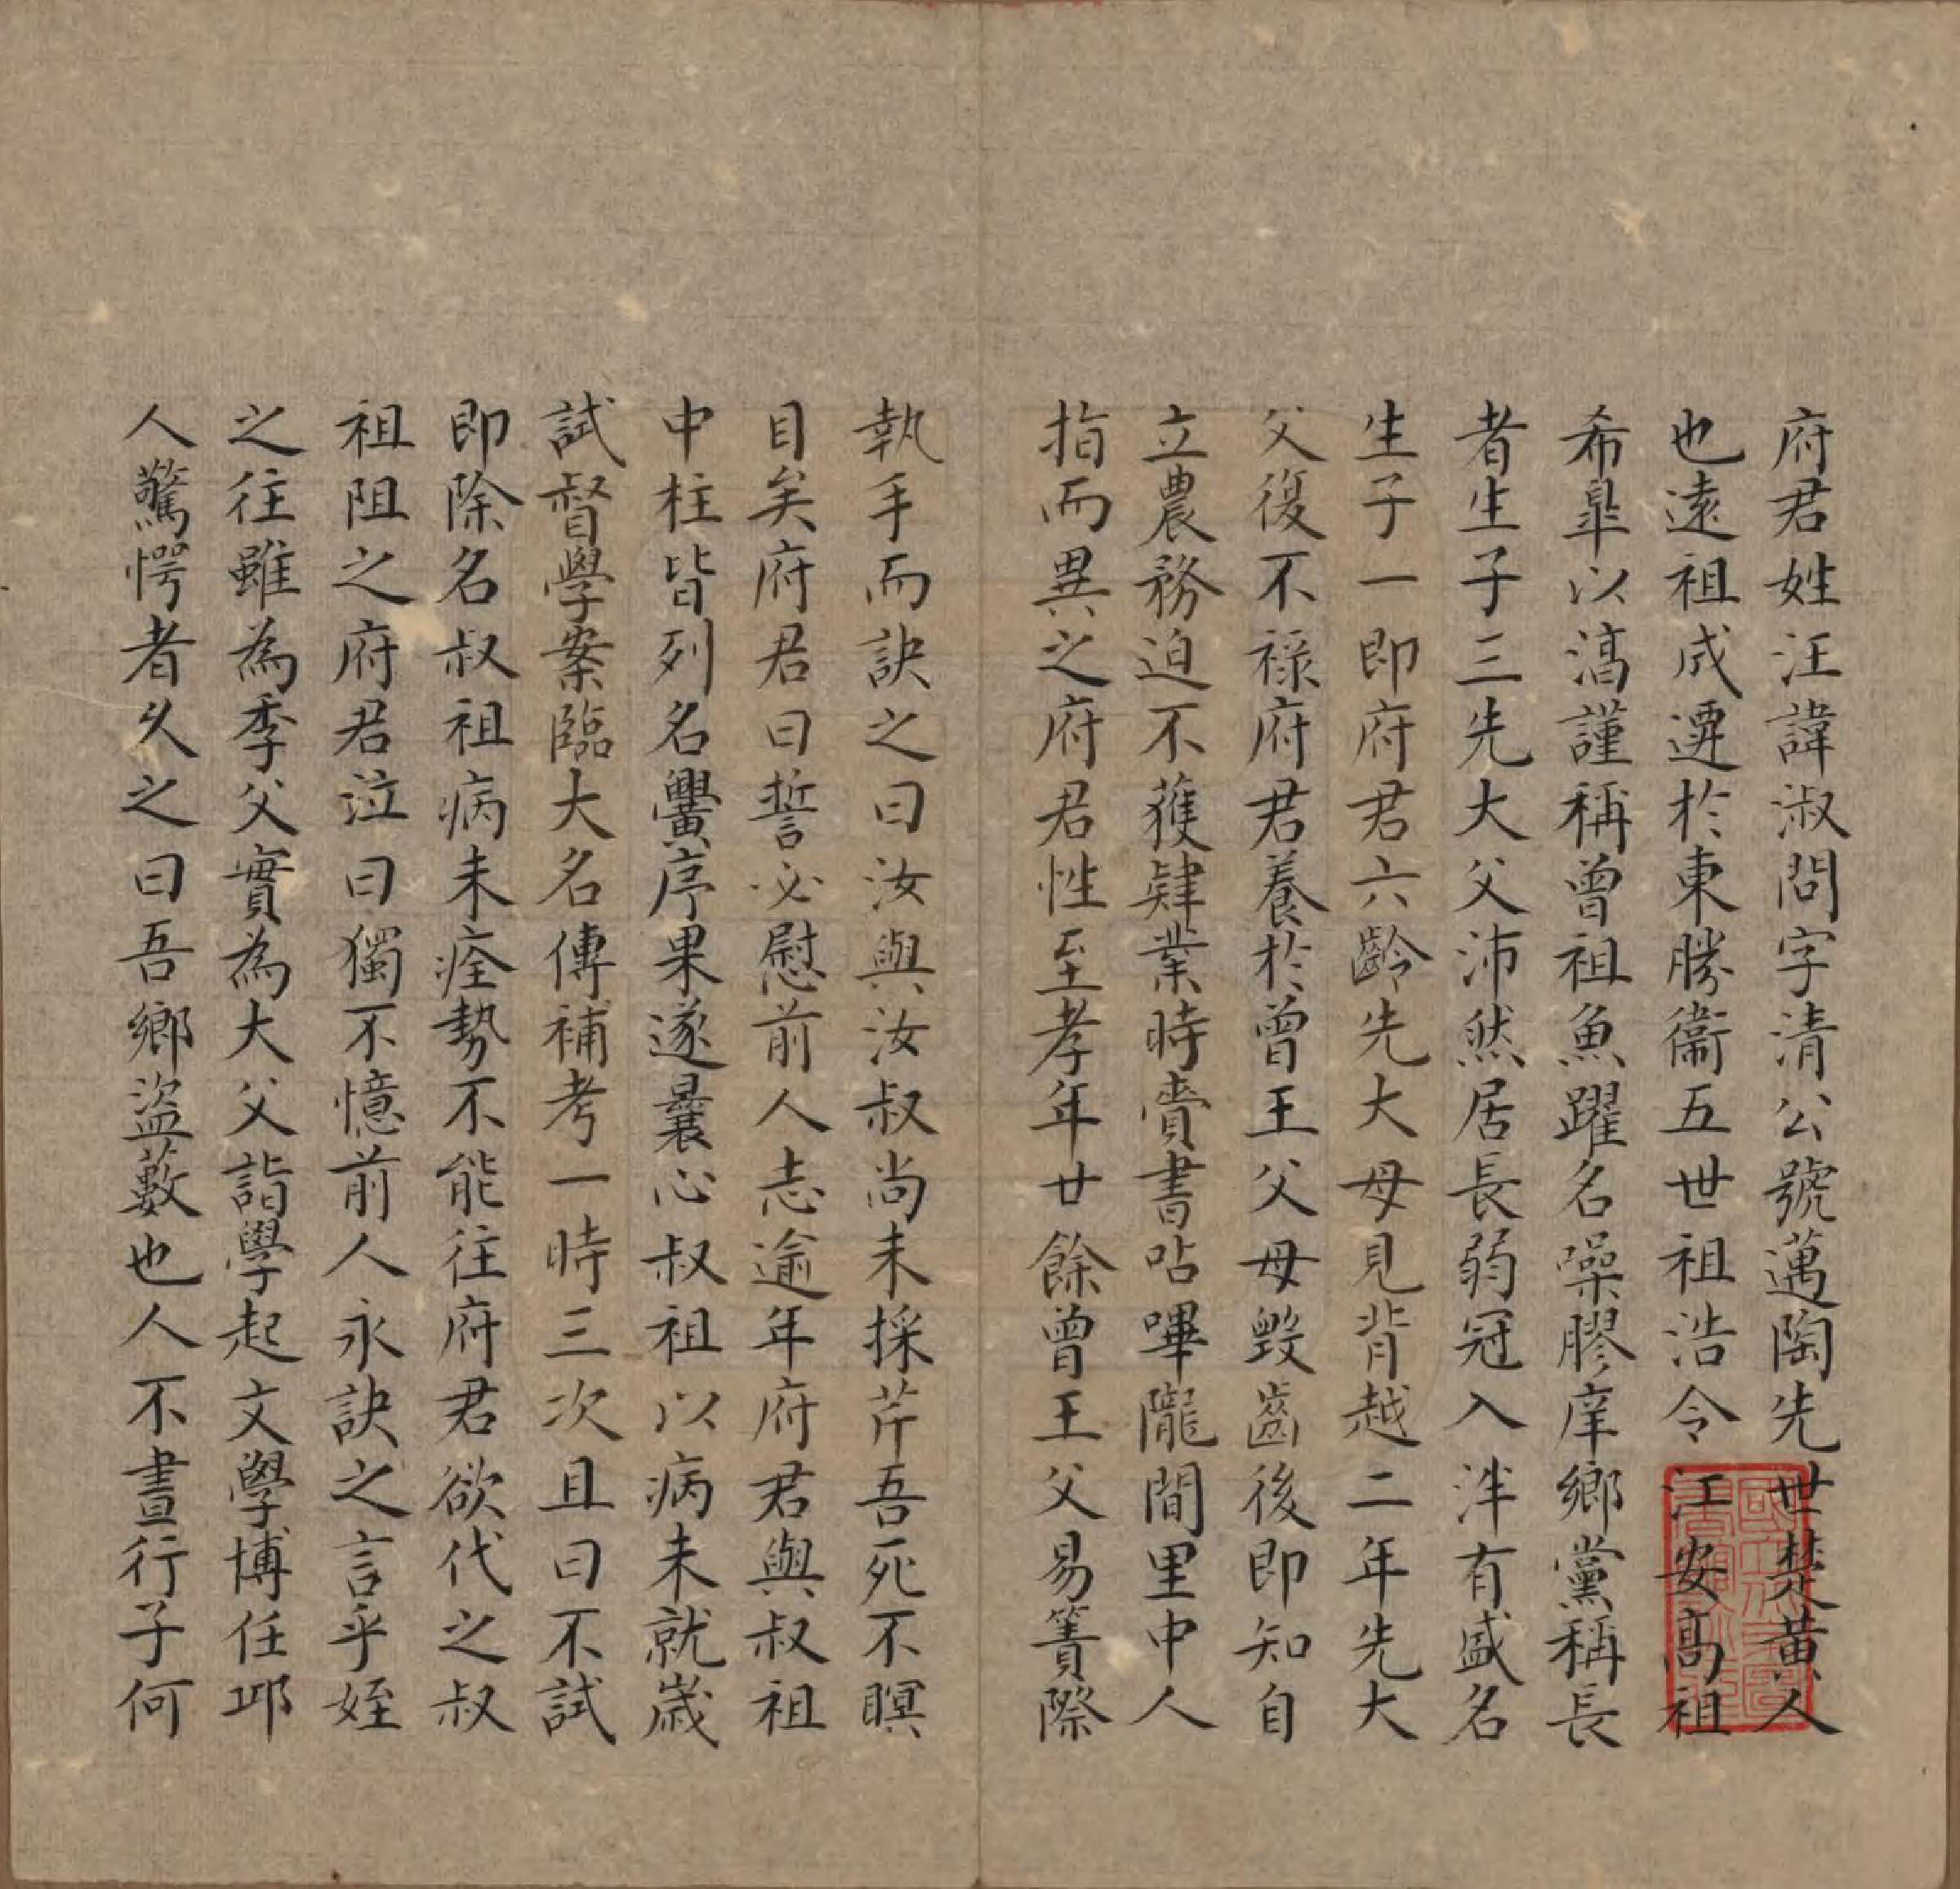 府君姓汪諱淑問字清公號邁陶先世楚黃人
也遠祖成遷於東勝衞五世祖浩令江安高祖
希皐以滈謹稱曾祖魚躍名噪膠庠鄉黨稱長
者生子三先大父沛然居長弱冠入泮有盛名
生子一即府君六齡先大母見背越二年先大
父復不祿府君養於曾王父母毀齒後即知自
立農務迫不獲肄業時賷書呫嗶隴間里中人
指而異之府君性至孝年廿餘曾王父易簀際
執手而訣之曰汝與汝叔尚未採芹吾死不瞑
目矣府君曰誓必慰前人志逾年府君與叔祖
中柱皆列名黌序果遂曩心叔祖以病未就歲
試督學案臨大名傳補考一時三次且曰不試
即除名叔祖病未痊勢不能往府君欲代之叔
祖阻之府君泣曰獨不憶前人永訣之言乎姪
之往雖為季父實為大父詣學起文學博任邱
人驚愕者久之曰吾鄉盜藪也人不晝行子何